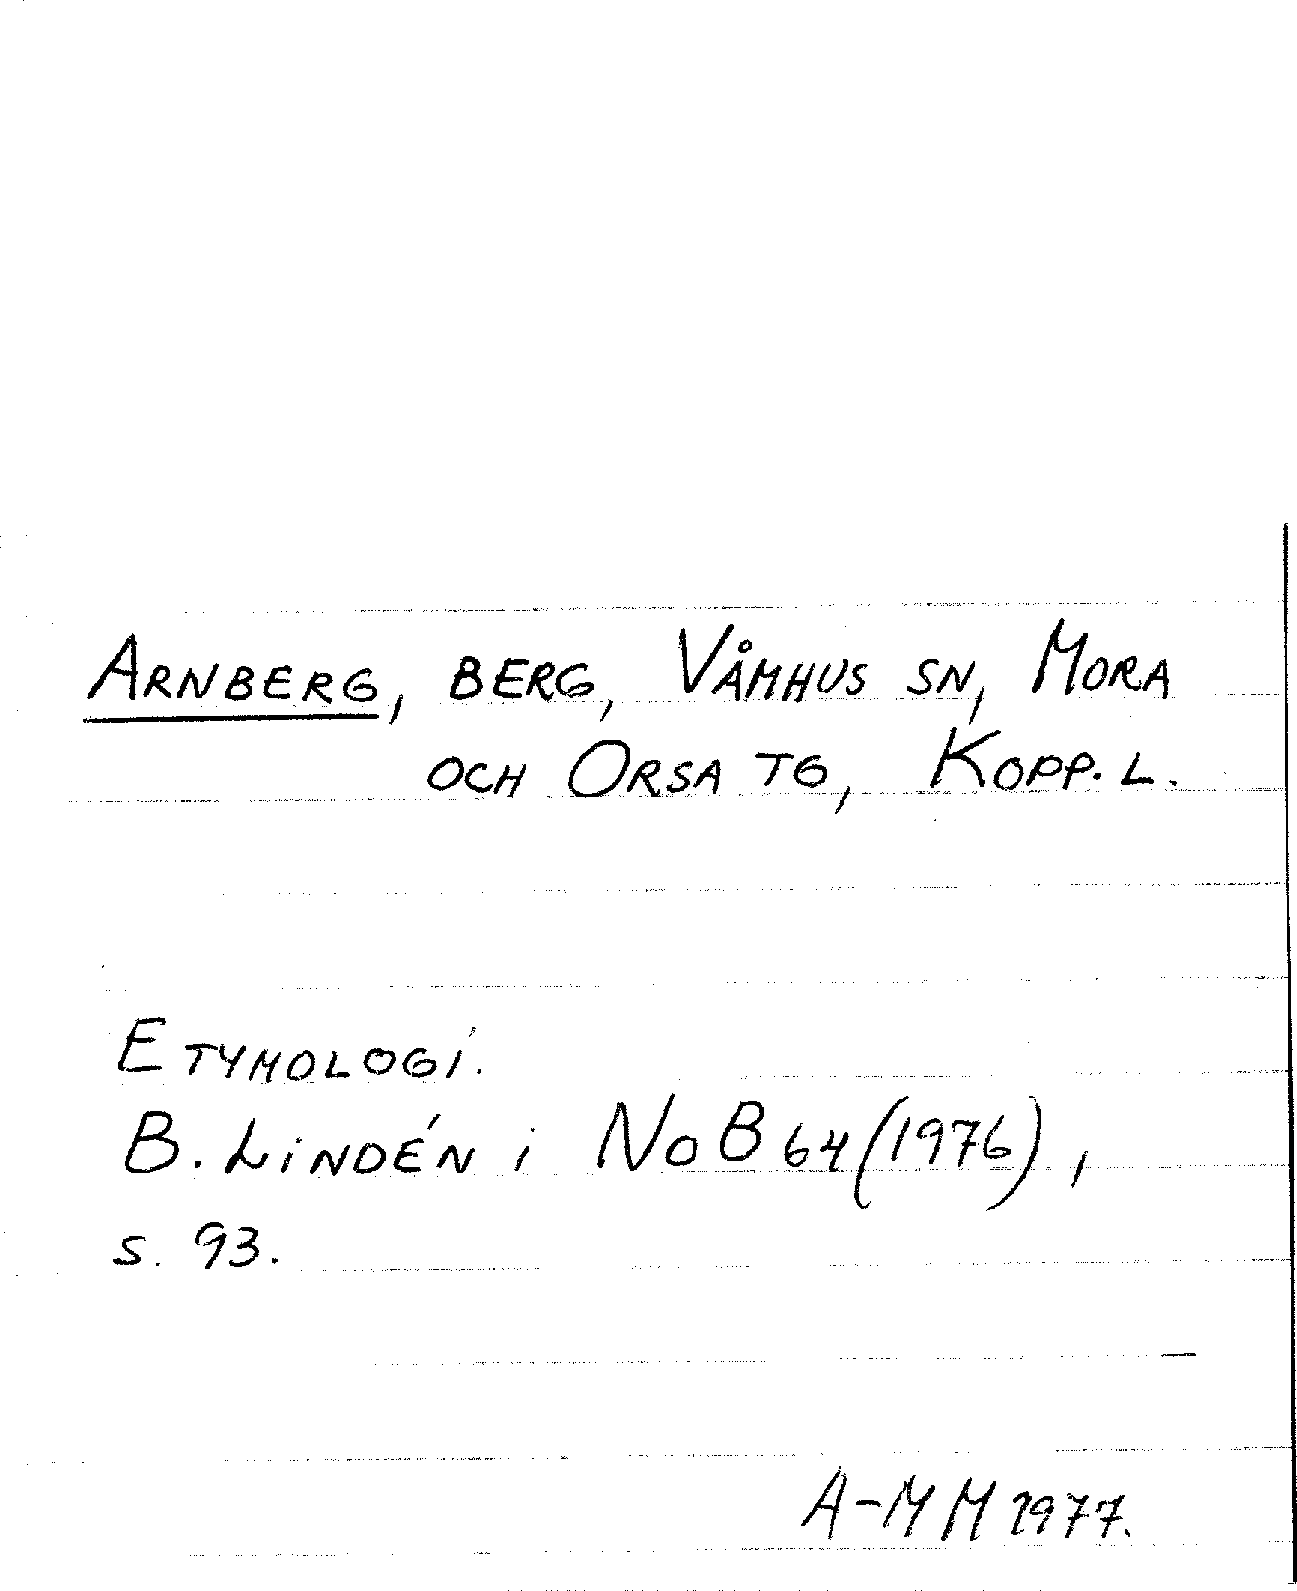 ARNBERG, BERG, VÅMHUS SN, MORA
OCH ORSA TG, KOPP. L.
ETYMOLOGI.
B. LINDÉN i NoB 64 (1976),
s. 93.
A-MM 1977.